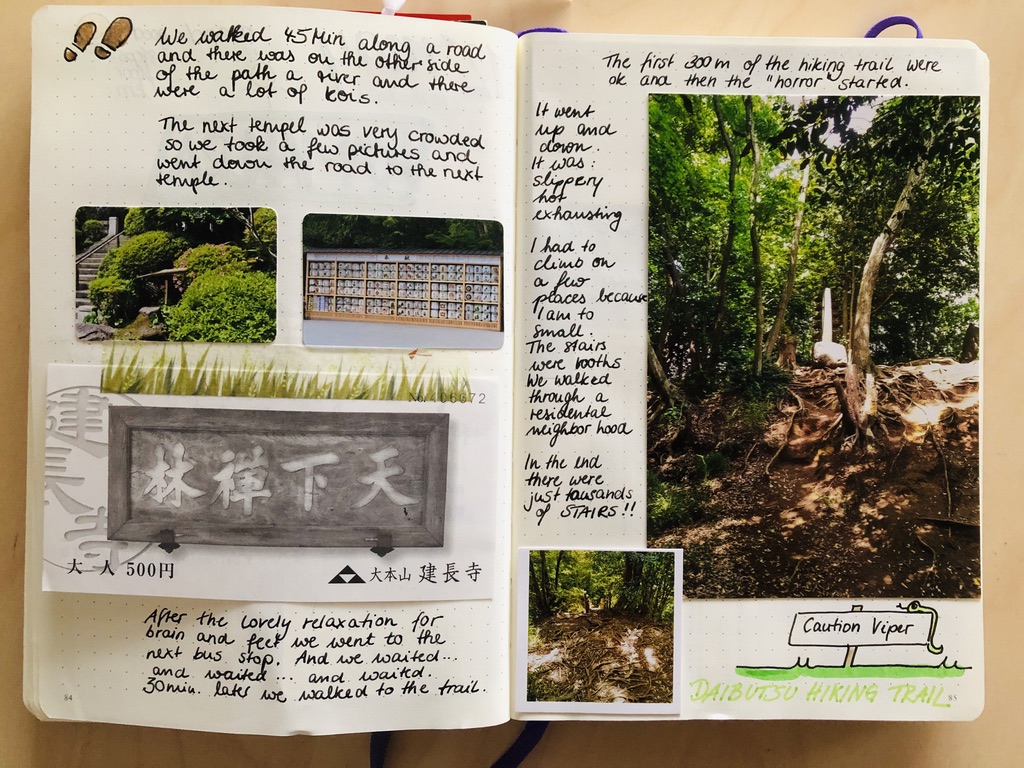 We walked 45Min along a road
and there was on the other side
of the path a river and there
were a lot of kois.
The next tempel was very crowded
so we took a few pictures and
went down the road to the next
temple.
No.406672
建長寺
林禅下天
大人 500円
大本山 建長寺
After the lovely relaxation for
brain and feet we went to the
next bus stop. And we waited...
and waited... and waited.
30min. later we walked to the trail.
84
The first 300m of the hiking trail were
ok and then the "horror" started.
It went
up and
down.
It was:
slippery
hot
exhausting
I had to
climb on
a few
places because
I am to
small.
The stairs
were rooths
We walked
through a
residental
neighborhood
In the end
there were
just tousands
of STAIRS!!
Caution Viper
DAIBUTSU HIKING TRAIL
85